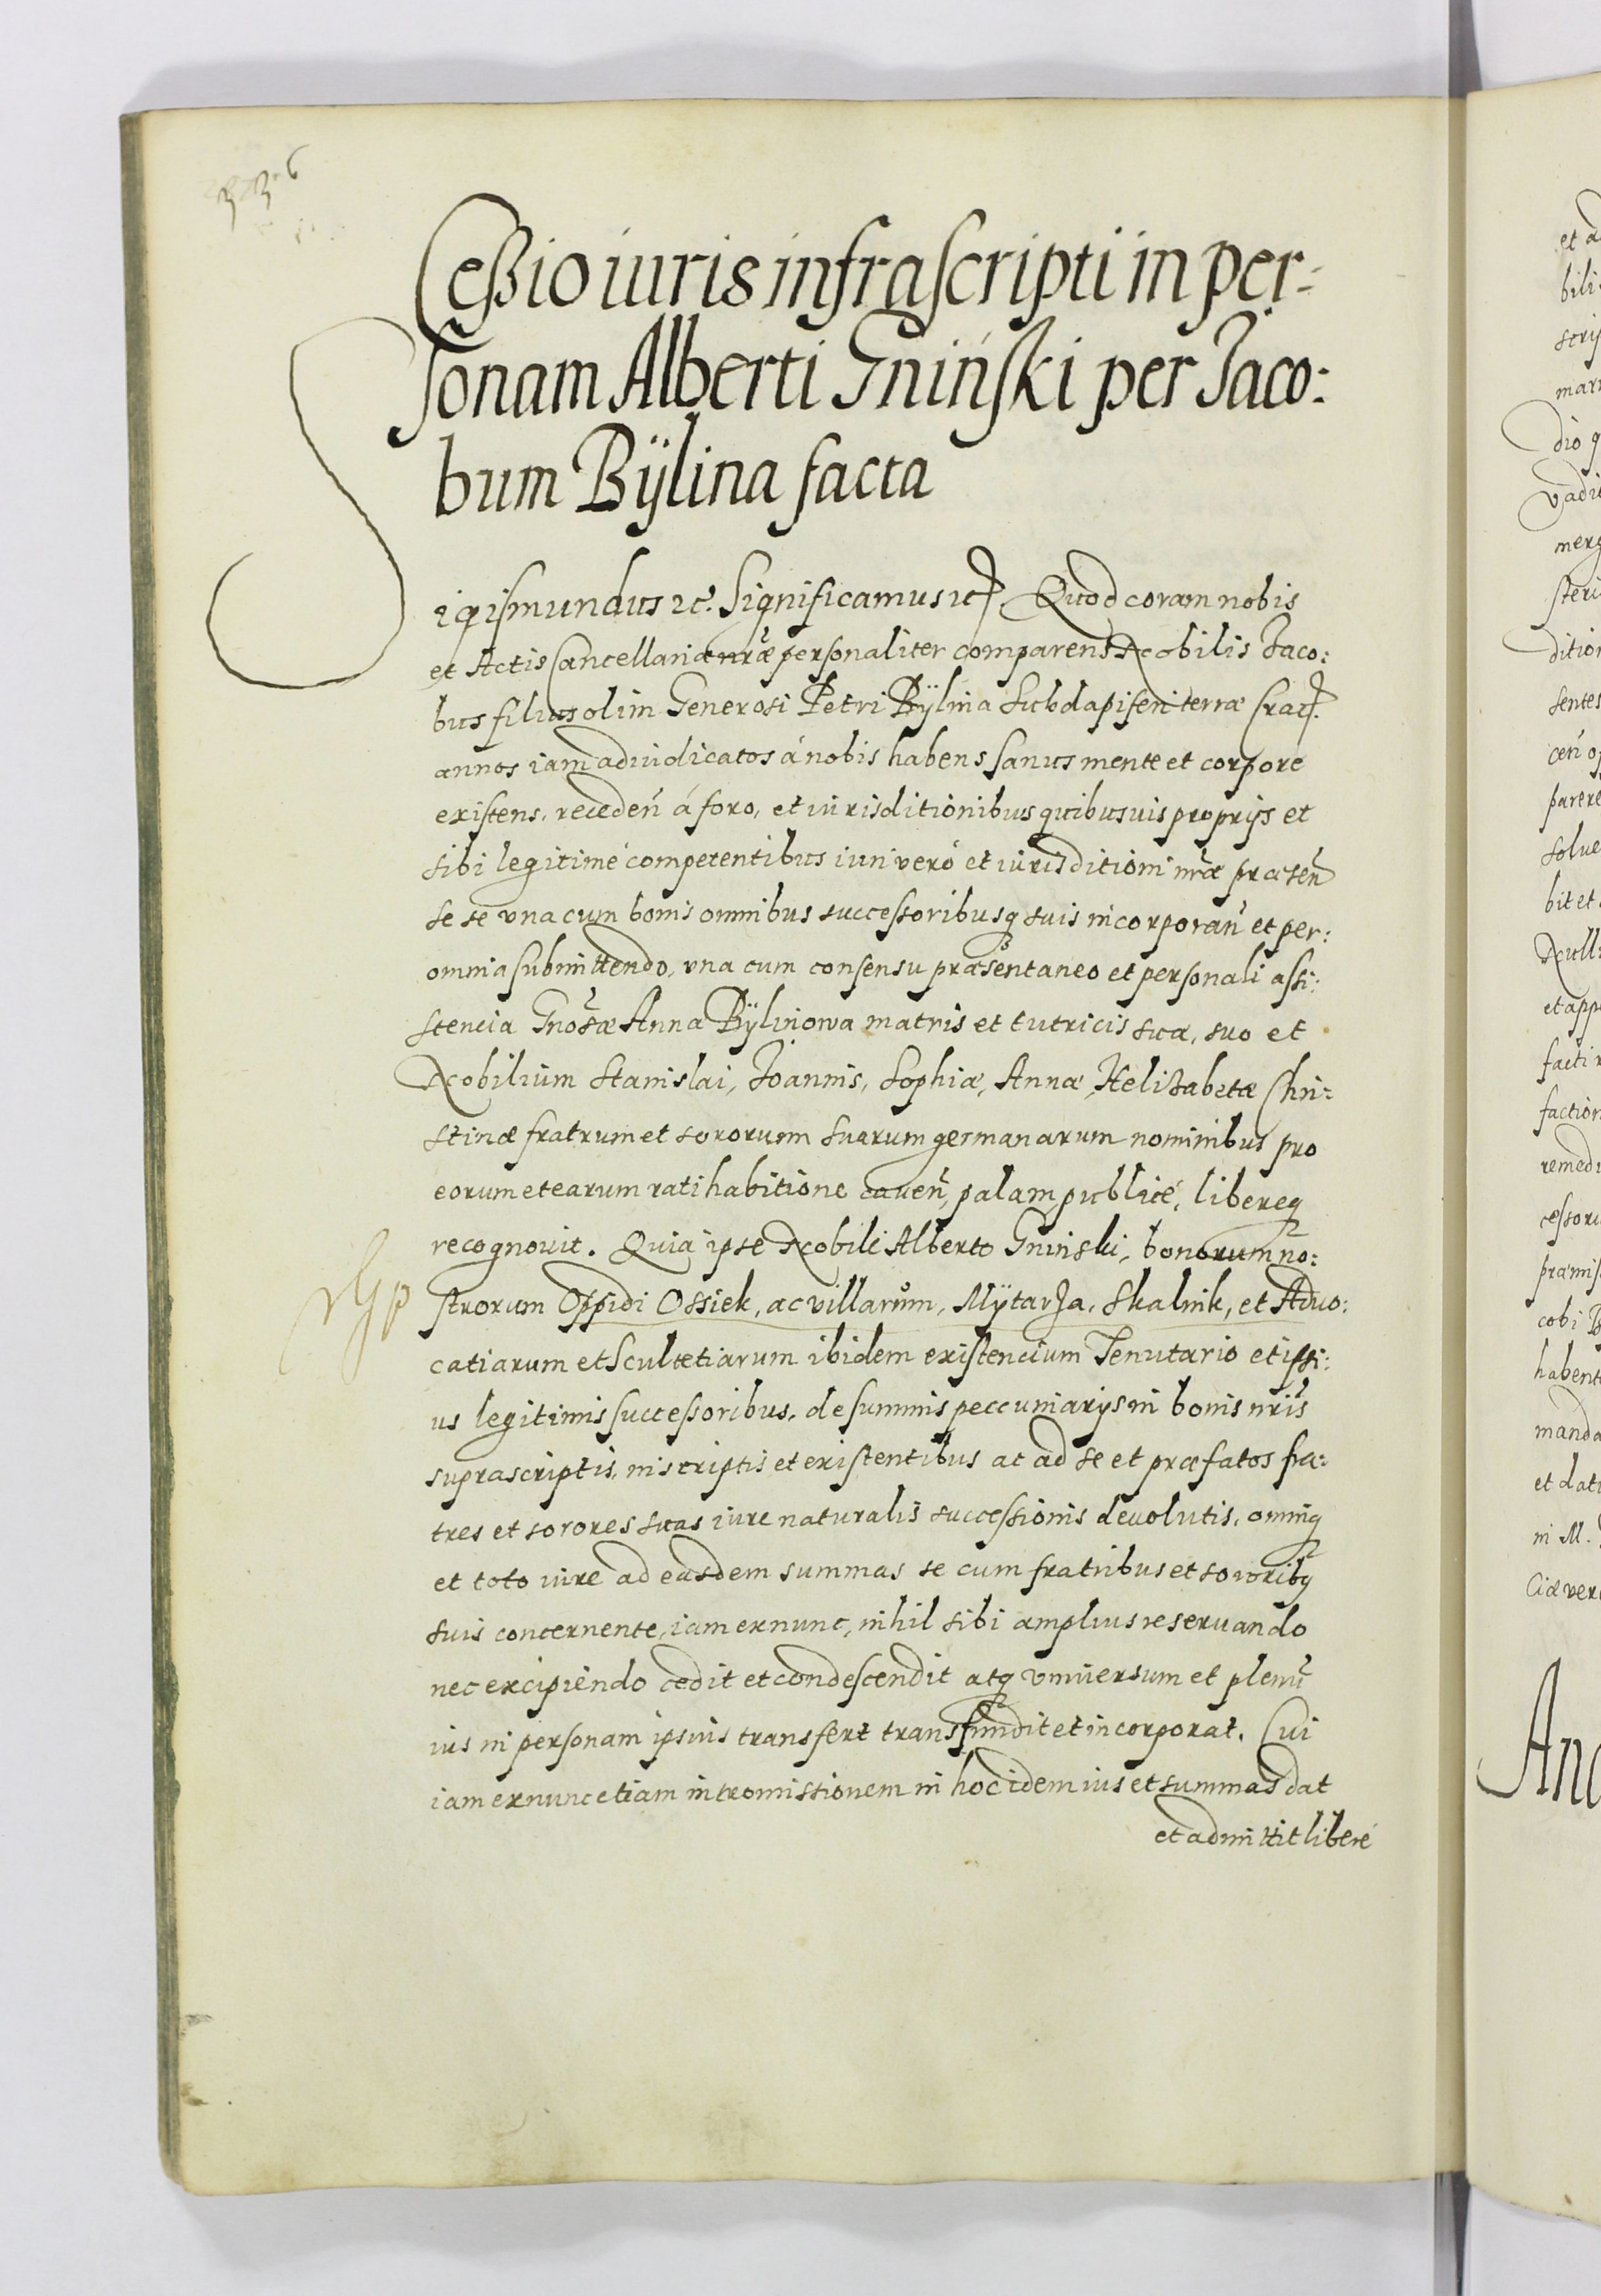 336
Ceßio iuris infrascripti in per-
sonam Alberti Gniński per Iaco:
bum Bÿlina facta
Sigismundus etc. Significamus etc. Quod coram nobis
et Actis Cancellariæ nr̃æ personaliter comparens Nobilis Iaco:
bus filius olim Generosi Petri Bÿlina Subdapiferi terræ Crac.
annos iam adiudicatos á nobis habens sanus mente et corpore
existens, receden̄ á foro, et iurisditionibus quibusuis proprijs et
sibi legitimé competentibus iuri veró et iurisditioni nr̃æ præsen̄
se se vna cum bonis omnibus successoribusq suis incorporan̄ et per:
omnia submittendo, vna cum consensu præsentaneo et personali assi:
stencia Gnosæ Anna Bÿlinowa matris et tutricis suæ, suo et
Nobilium Stanislai, Ioannis, Sophiæ, Annæ, Helizabetæ Chri:
stinæ fratrum et sororum suarum germanarum nominibus pro
eorum et earum ratihabitione cauen̄, palam, publicé, libereq
recognouit. Quia ipse Nobili Alberto Gninski, bonorum no:
strorum Oppidi Ossiek, ac villarum, Mÿtarza, Skalnik, et Aduo:
catiarum et Scultetiarum ibidem existencium Tenutario et ipsi:
us legitimis successoribus, de summis peccuniarijs in bonis nr̃is
suprascriptis, inscriptis et existentibus ac ad se et præfatos fra:
tres et sorores suas iure naturalis successionis deuolutis, omniq
et toto iure ad easdem summas se cum fratribus et sororibq
suis concernente, iam exnunc, nihil sibi amplius reseruando
nec excipiendo cedit et condescendit atq vniuersum et plenū
ius in personam ipsius transfert transfundit et incorporat. Cui
iam exnunc etiam intromissionem in hoc idem ius et summas dat
et admittit liberé